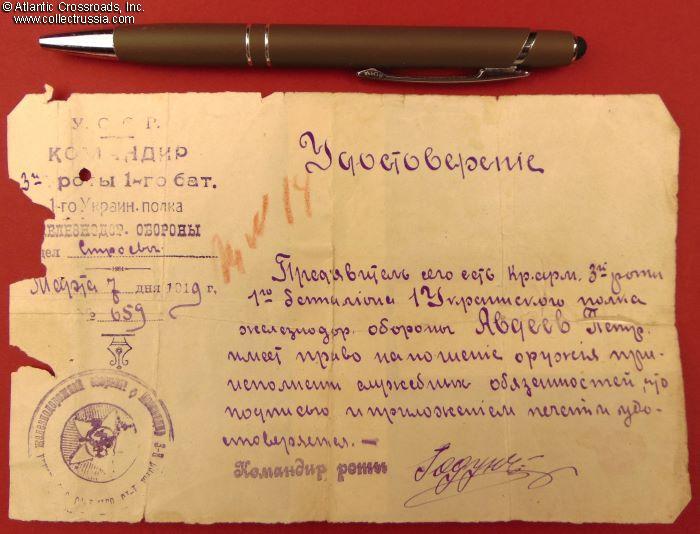 © Atlantic Crossroads, Inc.
www.collectrussia.com
У. С. С. Р.
КОМАНДИР
3й роты 1-го бат.
1-го Украин. полка
ЖЕЛЕЗНОДОР. ОБОРОНЫ
дел Строевы
Марта 7 дня 1919 г.
№ 659
Удостоверенiе
№ 14
Предявитель сего есть Кр.арм. 3й роты
1го баталiона 1 Украинского полка
железнодор. обороны Авдеев Петр,
имеет право на ношенiе оружiя при
исполнени служебных обязанностей, что
подписью и приложенiем печати удо-
стоверяется. –
Командир роты